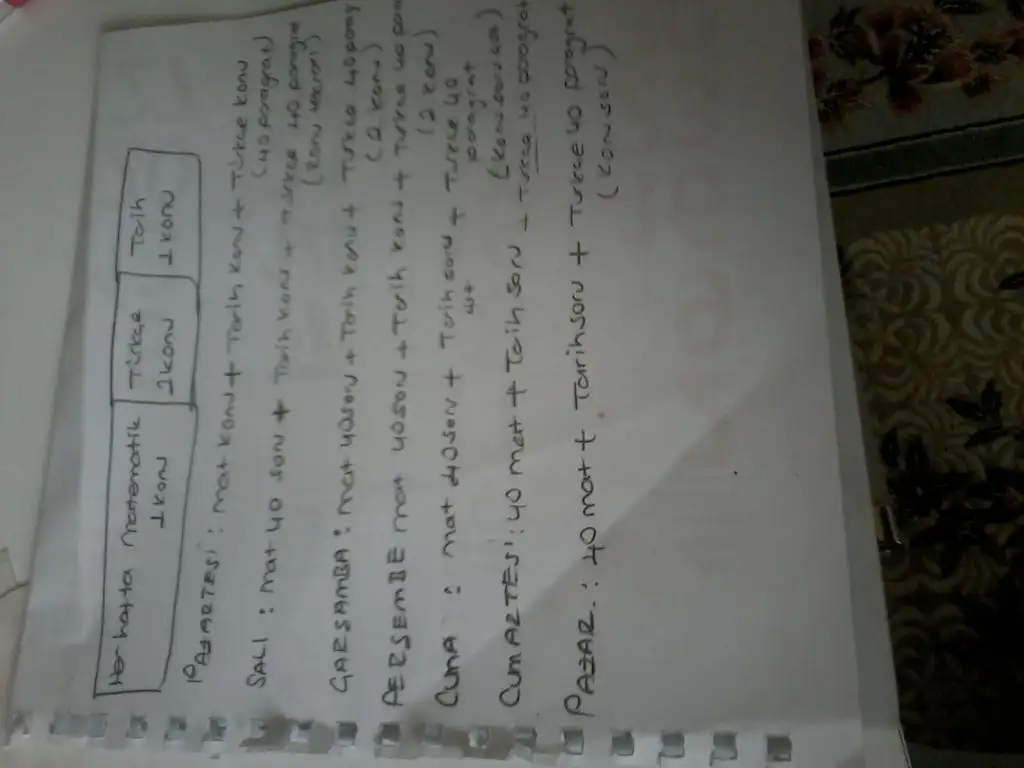 Her hafta Matematik Türkçe Tarih
1 konu 1 konu 1 konu
PAZARTESİ : mat konu + Tarih konu + Türkçe konu
(40 paragraf)
SALI : mat 40 soru + Tarih konu + Türkçe 40 paragraf
(konu
ÇARŞAMBA : mat 40 soru + Tarih konu + Türkçe 40 parag
(2 konu)
PERŞEMBE mat 40 soru + Tarih konu + Türkçe 40 para
(2 konu)
CUMA : mat 40 soru + Tarih soru + Türkçe 40
paragraf
CUMARTESİ : 40 mat + Tarih soru + Türkçe 40 paragraf
PAZAR : 40 mat + Tarih soru + Türkçe 40 paragraf